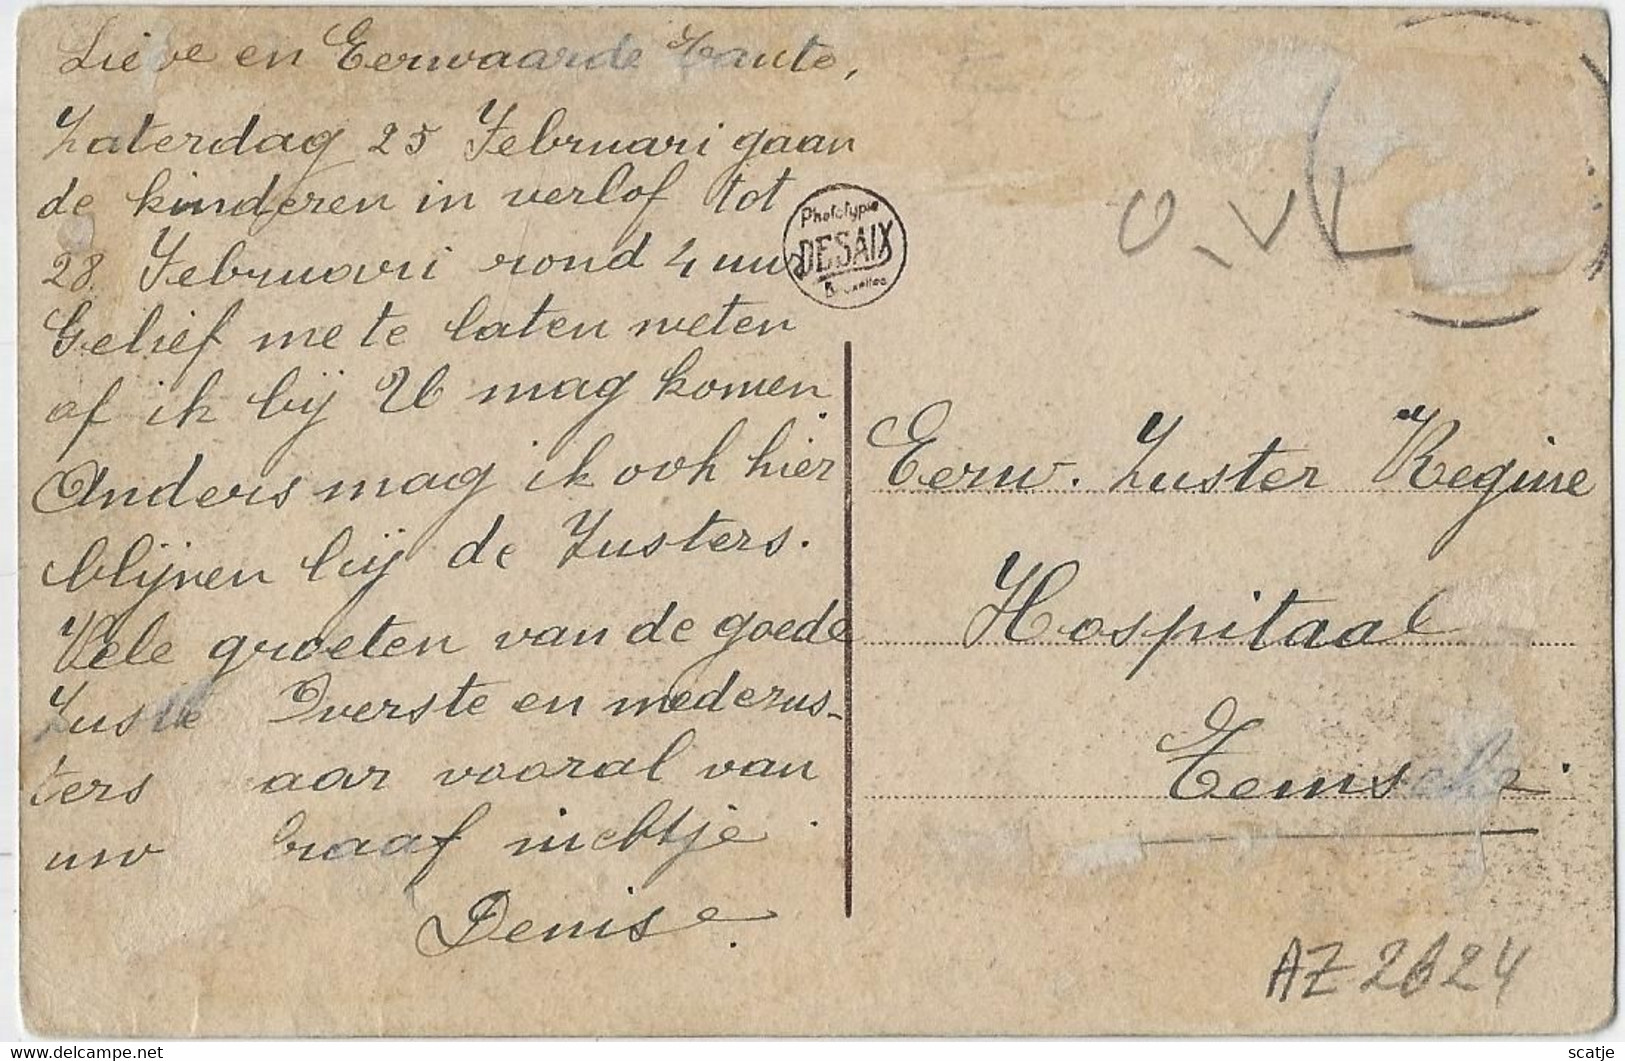 Lieve en Eerwaarde Tante,
Zaterdag 25 Februari gaan
de kinderen in verlof tot
28. Februari rond 4 uur
Gelief me te laten weten
of ik bij U mag komen.
Anders mag ik ook hier
blijven bij de Zusters.
Vele groeten van de goede
Zuster Overste en medezus-
ters aar vooral van
uw braaf nichtje.
Denise.
Phototypie
DESAIX
Bruxelles
O.VL
Eerw. Zuster Regine
Hospitaal
Temsche.
AZ 2624
delcampe.net
scatje